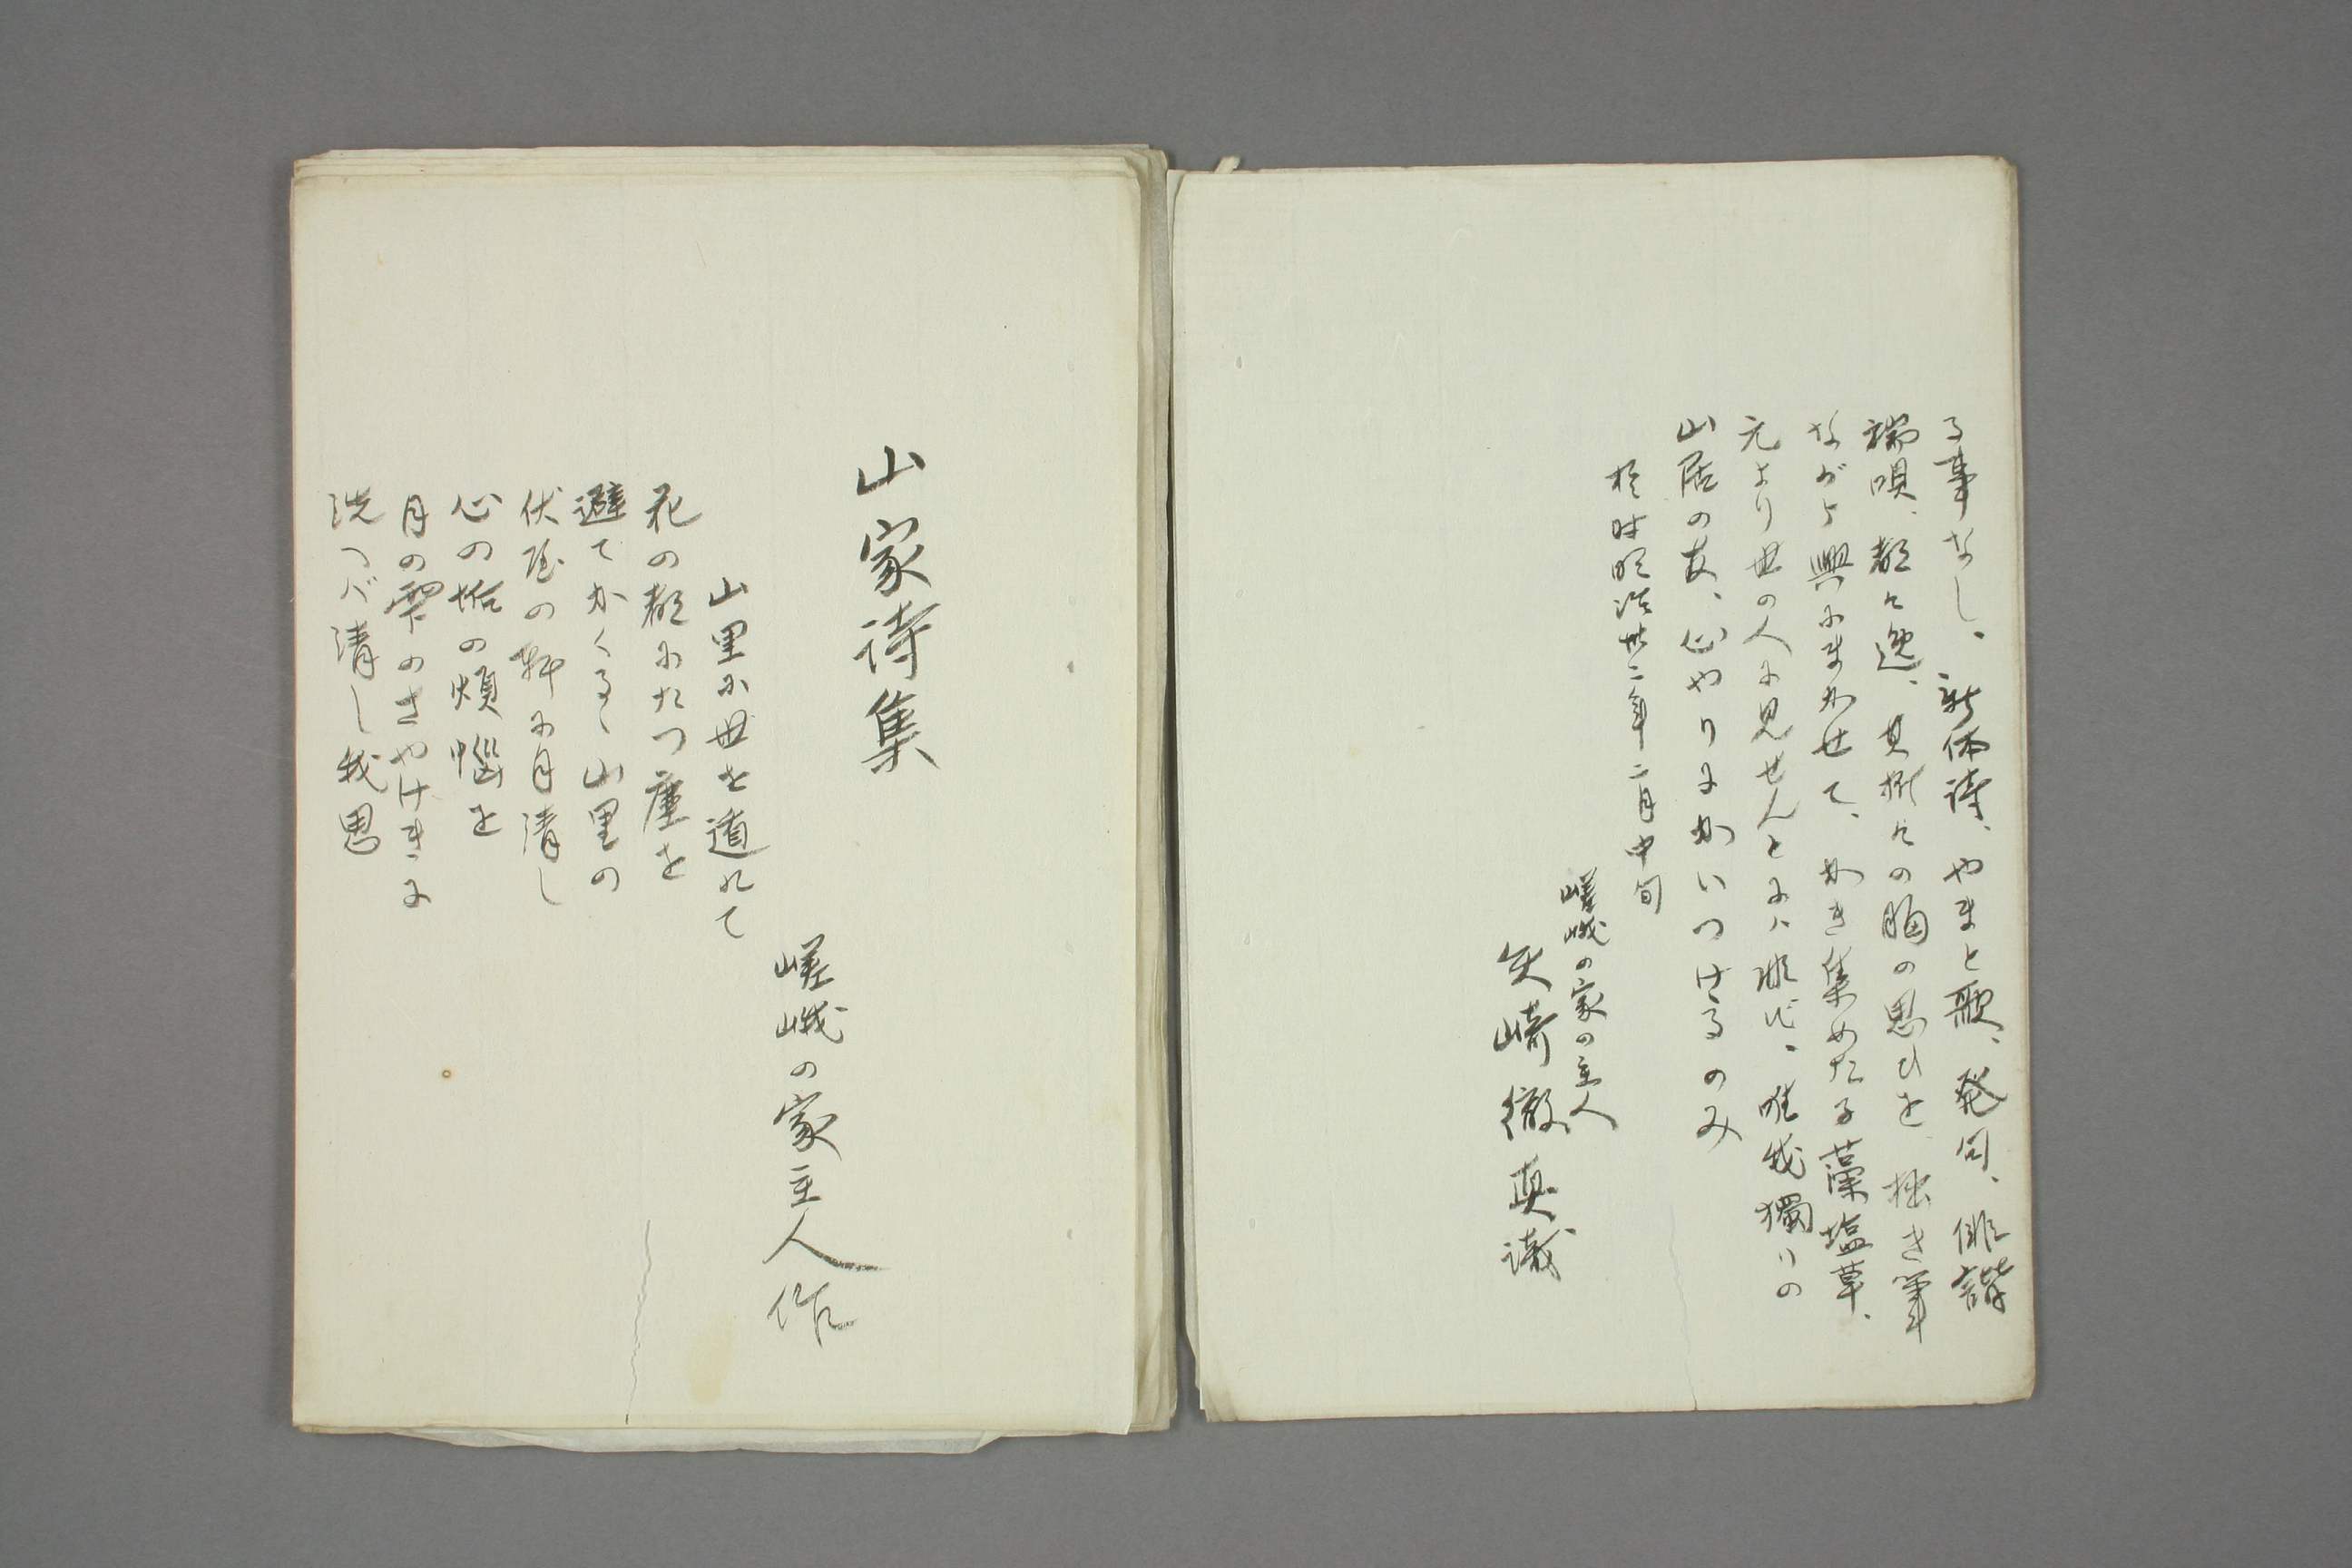 る事なし、新体詩、やまと歌、発句、俳諧
端唄、都々逸、其折々の胸の思ひを、拙き筆
ながら興にまかせて、かき集めたる藻塩草、
元より世の人に見せんとにハ非ず、唯我獨りの
山居の友、心やりにかいつけるのみ
於時明治廿二年二月中旬
嵯峨の家の主人
矢崎徹真識
山家詩集
嵯峨の家主人作
山里に世を遁れて
花の都にたつ塵を
避てかくるゝ山里の
伏屋の軒に月清し
心の垢の煩悩を
月の雫のさやけきに
洗つバ清し我思